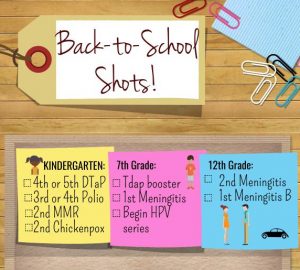 Back-to-School
Shots!
KINDERGARTEN:
4th or 5th DTaP
3rd or 4th Polio
2nd MMR
2nd Chickenpox
7th Grade:
Tdap booster
1st Meningitis
Begin HPV
series
12th Grade:
2nd Meningitis
1st Meningitis B